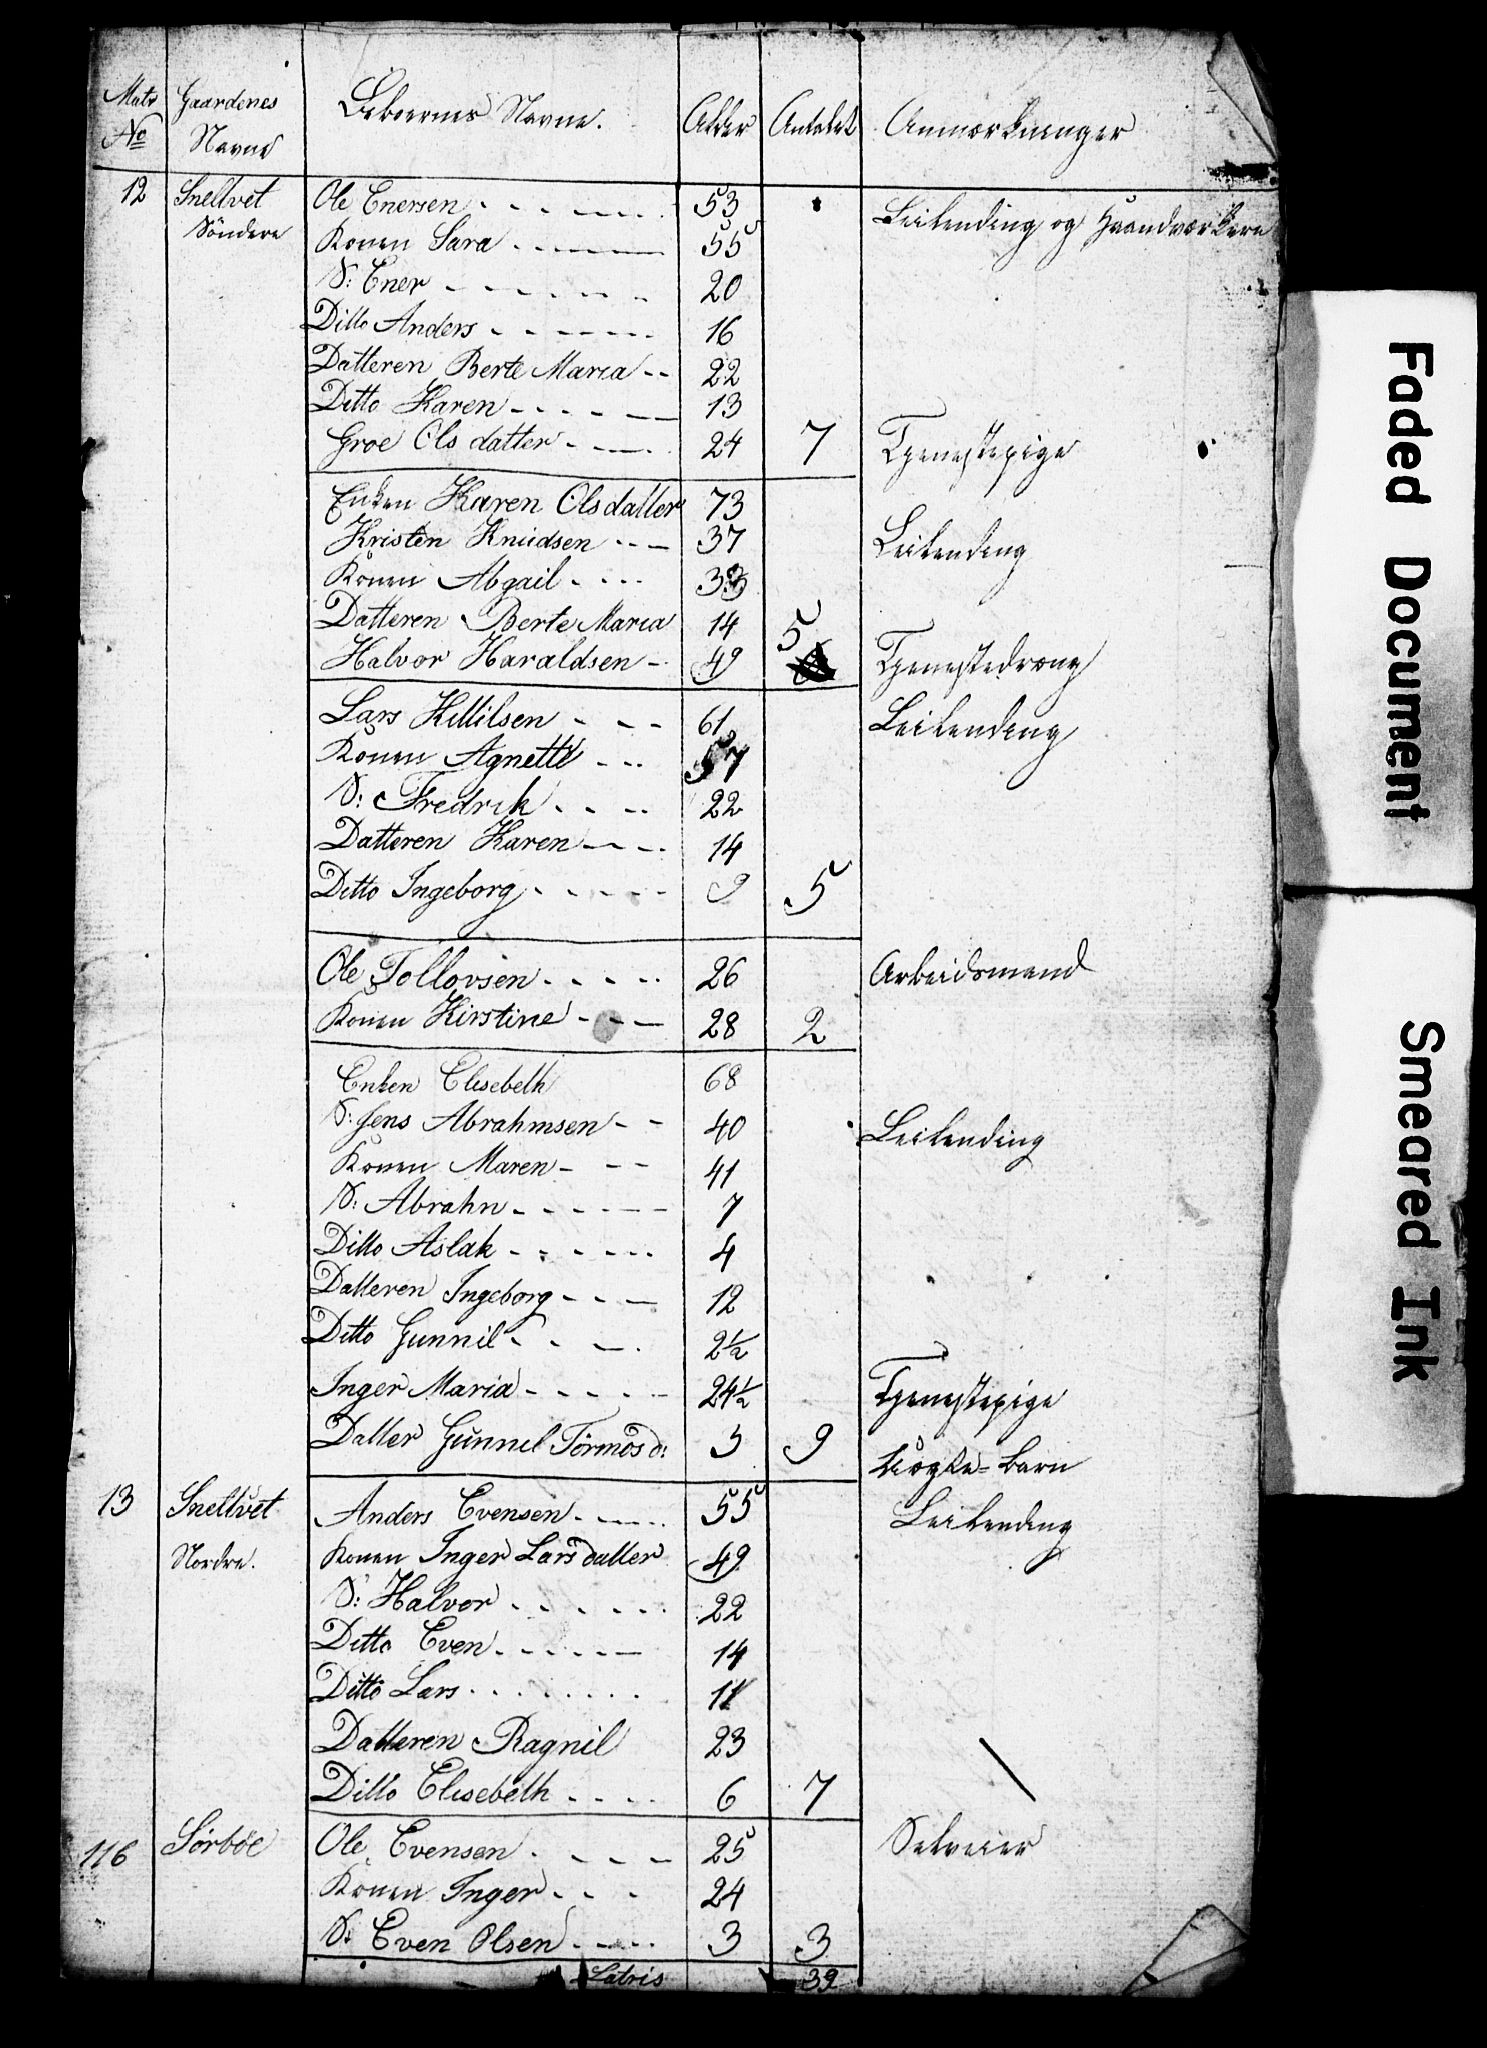 Matr Gaardenes Beboernes Navne. Alder Antalet Anmærkninger
No Navne
12 Snellvet Ole Enersen 53 Leilending og Haandværkere
Söndere Konen Sara 55
S: Ener 20
Ditto Anders 16
Datteren Berte Maria 22
Ditto Karen 13
Groe Olsdatter 24 7 Tjenestepige
Enken Karen Olsdatter 73
Kristen Knudsen 37 Leilending
Konen Abgail 33
Datteren Berte Maria 14
Halvor Haraldsen 49 5 Tjenestedreng
Lars Killilsen 61 Leilending
Konen Agnette 57
S: Fredrik 22
Datteren Karen 14
Ditto Ingeborg 9 5
Ole Tollovsen 26 Arbeidsmand
Konen Kirstine 28 2
Enken Elisebeth 68
S: Jens Abrahmsen 40 Leilending
Konen Maren 41
S: Abrahn 7
Ditto Aslak 4
Datteren Ingeborg 12
Ditto Gunnil 2½
Inger Maria 24½ Tjenestepige
Datter Gunnil Tormos d: 3 9 Barn
13 Snellvet Anders Evensen 55 Leilending
Nordre. Konen Inger Larsdatter 49
S: Halvor 22
Ditto Even 14
Ditto Lars 11
Datteren Ragnil 23
Ditto Elisebeth 6 7
116 Sörböe Ole Evensen 25 Selveier
Konen Inger 24
S: Even Olsen 3 3
Latris 39
Faded Document
Smeared Ink